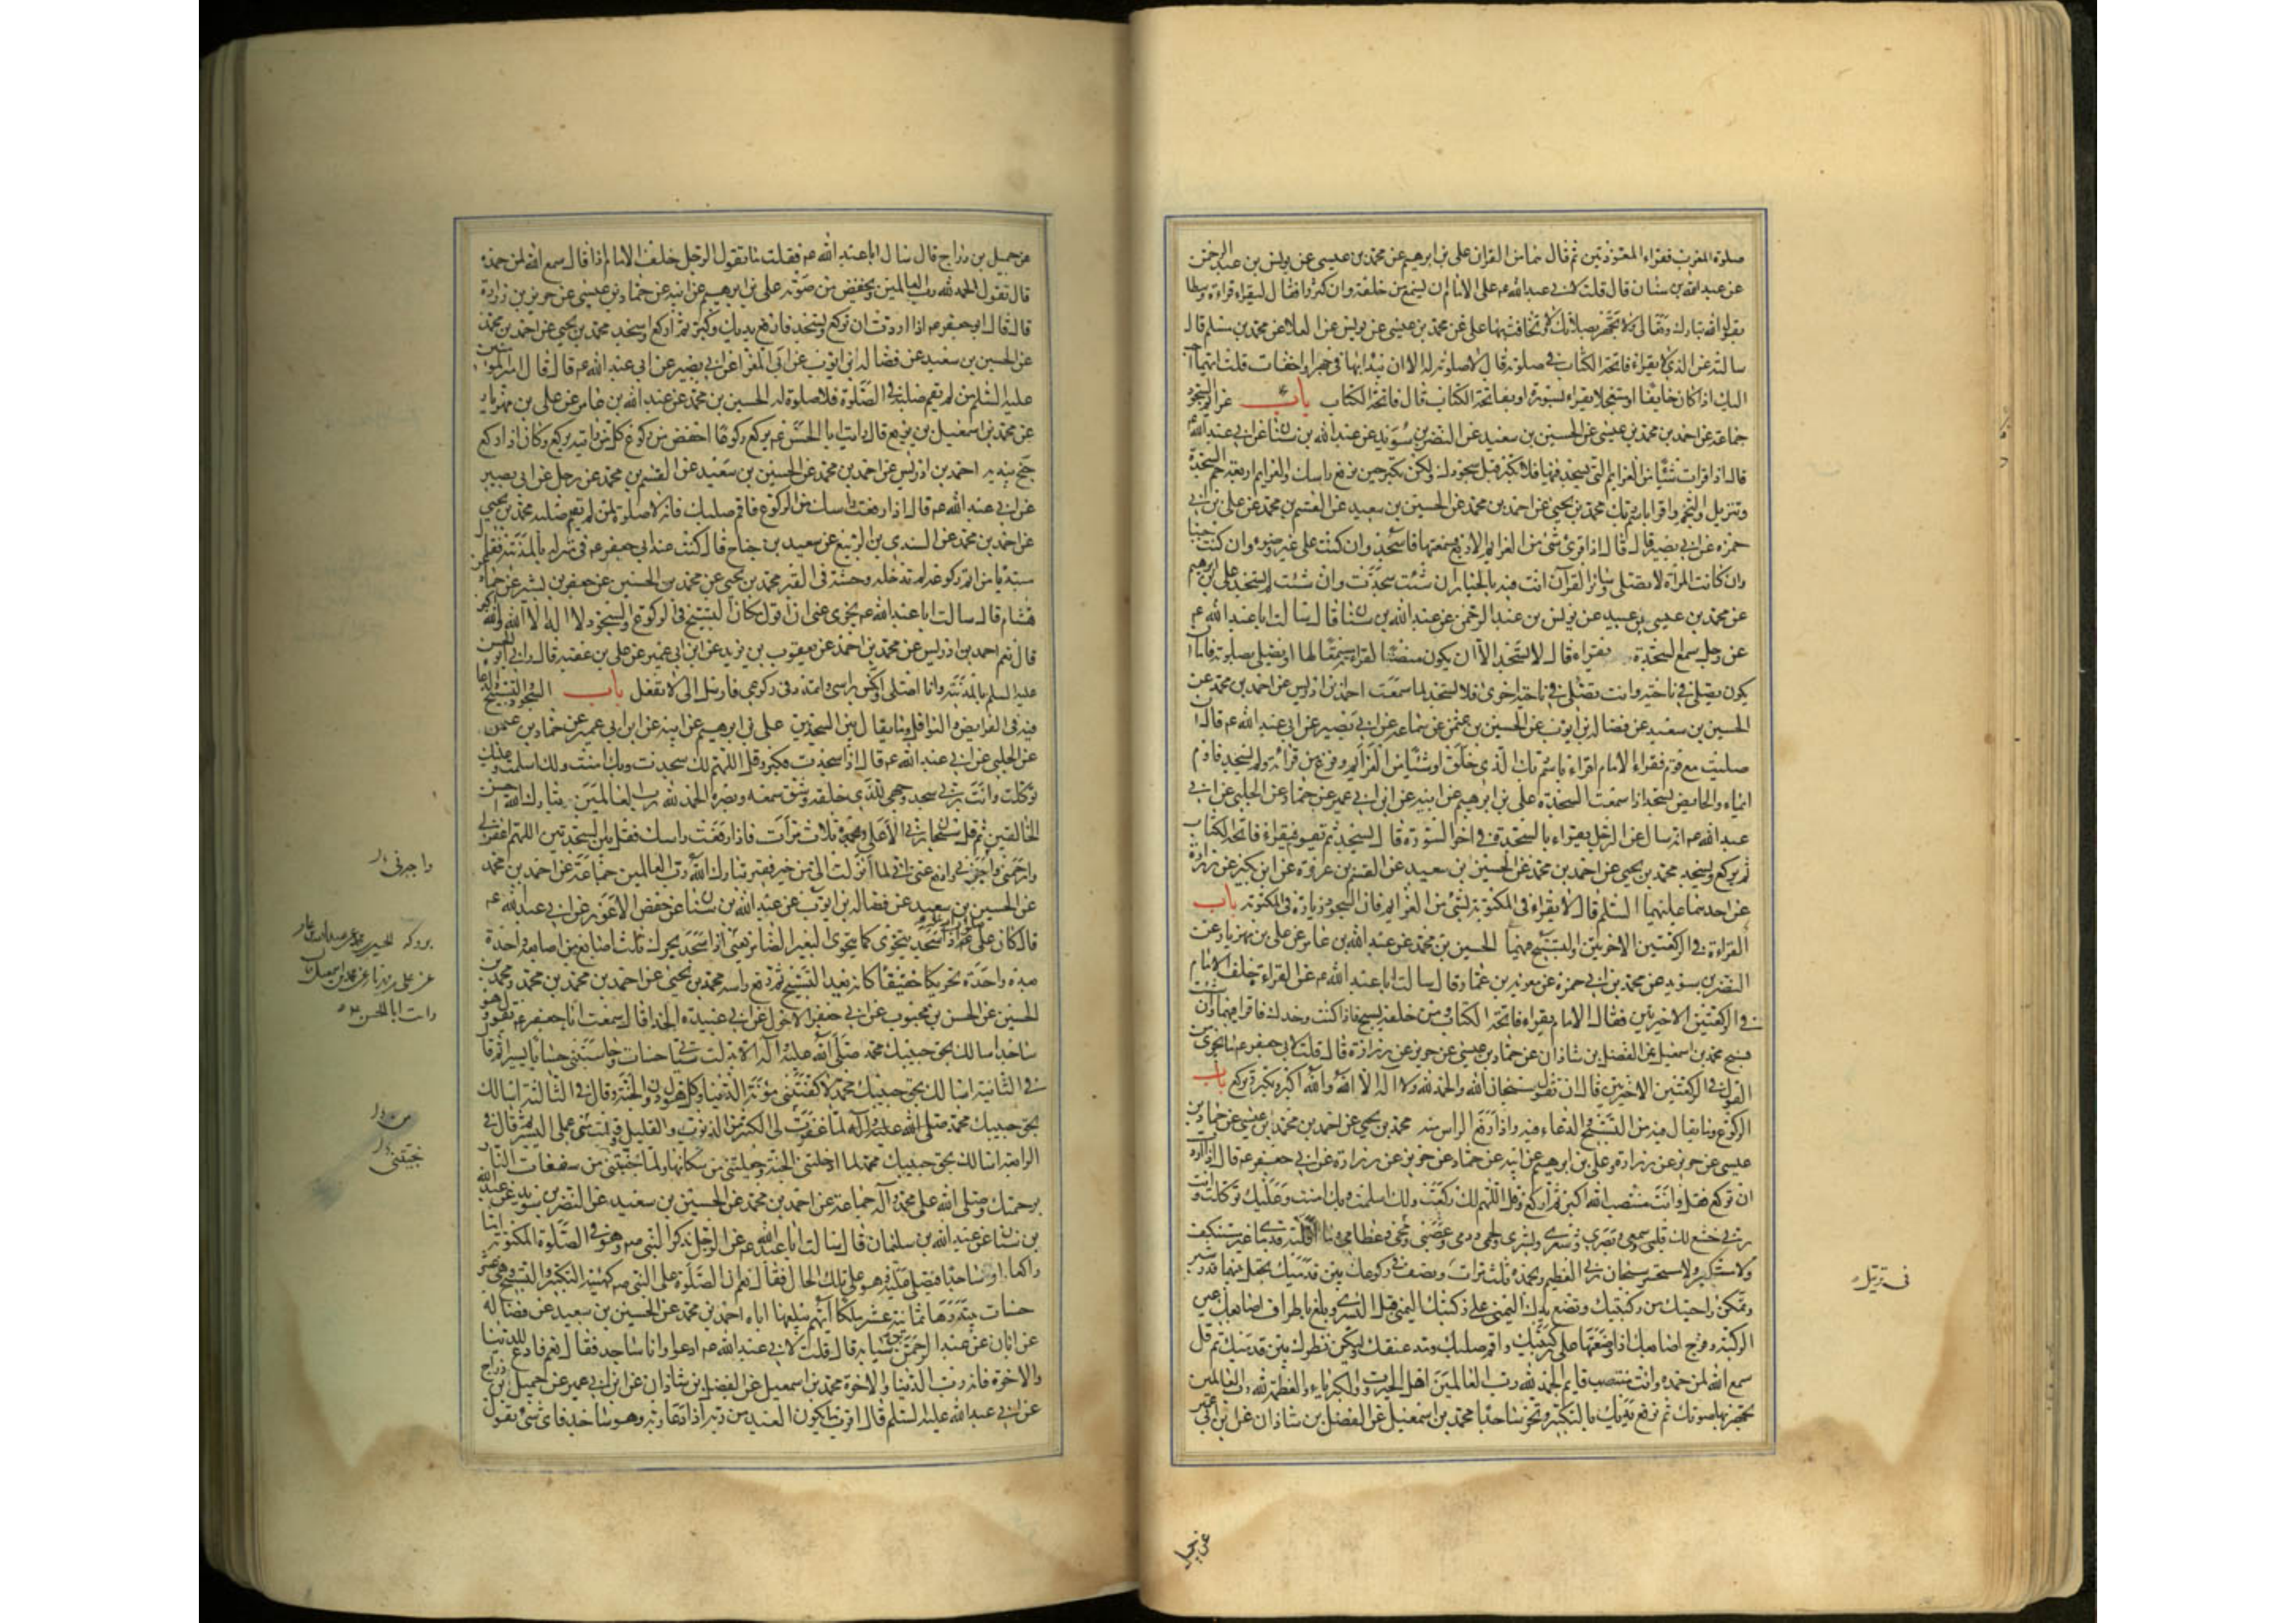 صلوة المغرب فقراء المعوذتين ثم قال هما من القران علي بن ابرهيم عن محمد بن عيسى عن يونس بن عبد الرحمن
عن عبد الله بن سنان قال قلت لابي عبد الله عم على الامام ان يسمع من خلفه وان كثروا فقال ليقراء قراءة وسطا
يقول الله تبارك وتعالى ولا تجهر بصلاتك ولا تخافت بها علي عن محمد بن عيسى عن يونس عن العلا عن محمد بن مسلم قال
سالته عن الذي لا يقراء فاتحة الكتاب في صلوته قال لا صلوة له الا ان يبدا بها في جهر او اخفات قلت ايهما احب
اليك اذا كان خايفا او مستعجلا يقراء بسورة او بفاتحة الكتاب قال فاتحة الكتاب باب عزايم السجود
جماعة عن احمد بن محمد بن عيسى عن الحسين بن سعيد عن النضر بن سويد عن عبد الله بن سنان عن ابي عبد الله عم
قال اذا قرات شيئا من العزايم التي يسجد فيها فلا تكبر قبل سجودك ولكن تكبر حين ترفع راسك والعزايم اربعة حم السجدة
وتنزيل والنجم واقرا باسم ربك محمد بن يحيى عن احمد بن محمد عن الحسين بن سعيد عن القسم بن محمد عن علي بن ابي
حمزه عن ابي بصير قال قال اذا قرئ شئ من العزايم الاربع فسمعتها فاسجد وان كنت على غير وضوء وان كنت جنبا
وان كانت المراة لا تصلي وسائر القرآن انت فيه بالخيار ان شئت سجدت وان شئت لم تسجد علي بن ابرهيم
عن محمد بن عيسى بن عبيد عن يونس بن عبد الرحمن عن عبد الله بن سنان قال سالت ابا عبد الله عم
عن رجل سمع السجدة تقراء قال لا تسجد الا ان يكون منصتا لقراءته مستمعا لها او يصلي بصلوته فاما ان
يكون يصلي في ناحية وانت تصلي في ناحية اخرى فلا تسجد لما سمعت احمد بن ادريس عن احمد بن محمد عن
الحسين بن سعيد عن فضالة بن ايوب عن الحسين بن عثمن عن سماعة عن ابي بصير عن ابي عبد الله عم قال ان
صليت مع قوم فقراء الامام اقراء باسم ربك الذي خلق او شيئا من العزايم وفرغ من قراته ولم يسجد فاوم
ايماء والحايض تسجد اذا سمعت السجدة علي بن ابرهيم عن ابيه عن ابن ابي عمير عن حماد عن الحلبي عن ابي
عبد الله عم انه سال عن الرجل يقراء بالسجدة في اخر السورة قال يسجد ثم يقوم فيقراء فاتحة الكتاب
ثم يركع ويسجد محمد بن يحيى عن احمد بن محمد عن الحسين بن سعيد عن القسم بن عروة عن ابن بكير عن زرارة
عن احدهما عليهما السلم قال لا يقراء في المكتوبة بشئ من العزايم فان السجود زيادة في المكتوبة باب
القراءة في الركعتين الاخريتين والتسبيح فيهما الحسين بن محمد عن عبد الله بن عامر عن علي بن مهزيار عن
النضر بن سويد عن محمد بن ابي حمزة عن معوية بن عمار قال سالت ابا عبد الله عم عن القراءة خلف الامام
في الركعتين الاخريتين فقال الامام يقراء فاتحة الكتاب ومن خلفه يسبح فاذا كنت وحدك فاقرا فيهما وان شئت
فسبح محمد بن اسمعيل عن الفضل بن شاذان عن حماد بن عيسى عن حريز عن زرارة قال قلت لابي جعفر عم ما يجزى من
القول في الركعتين الاخريتين قال ان تقول سبحان الله والحمد لله ولا اله الا الله والله اكبر وتكبر وتركع باب
الركوع وما يقال فيه من التسبيح والدعاء فيه واذا رفع الراس منه محمد بن يحيى عن احمد بن محمد بن عيسى عن حماد بن
عيسى عن حريز عن زرارة وعلي بن ابرهيم عن ابيه عن حماد عن حريز عن زرارة عن ابي جعفر عم قال اذا اردت
ان تركع فقل وانت منتصب الله اكبر ثم اركع وقل اللهم لك ركعت ولك اسلمت وبك امنت وعليك توكلت وانت
ربي خشع لك قلبي وسمعي وبصري وشعري وبشري ولحمي ودمي وعصبي ومخي وعظامي وما اقلته قدماي غير مستنكف
ولا مستكبر ولا مستحسر سبحان ربي العظيم وبحمده ثلث مرات وتصف في ركوعك بين قدميك تجعل بينهما قدر شبر
وتمكن راحتيك من ركبتيك وتضع يدك اليمنى على ركبتك اليمنى قبل اليسرى وبلع باطراف اصابعك عين
الركبة وفرج اصابعك اذا وضعتها على ركبتيك واقم صلبك ومد عنقك وليكن نظرك بين قدميك ثم قل
سمع الله لمن حمده وانت منتصب قايم الحمد لله رب العالمين اهل الجبروت والكبرياء والعظمة لله رب العالمين
تجهر بها صوتك ثم ترفع يديك بالتكبير وتخر ساجدا محمد بن اسمعيل عن الفضل بن شاذان عن ابن ابي عمير
في ترتيل
عن جميل
عن جميل بن دراج قال سال ابا عبد الله عم فقلت ما يقول الرجل خلف الامام اذا قال سمع الله لمن حمده
قال تقول الحمد لله رب العالمين ويخفض من صوته علي بن ابرهيم عن ابيه عن حماد بن عيسى عن حريز بن زرارة
قال قال ابو جعفر عم اذا اردت ان تركع وتسجد فارفع يديك وكبر ثم اركع واسجد محمد بن يحيى عن احمد بن محمد
عن الحسين بن سعيد عن فضالة بن ايوب عن ابي المغرا عن ابي بصير عن ابي عبد الله عم قال قال امير المومنين
عليه السلم من لم يقم صلبه في الصلوة فلا صلوة له الحسين بن محمد عن عبد الله بن عامر عن علي بن مهزيار
عن محمد بن اسمعيل بن بزيع قال رايت ابا الحسن عم يركع ركوعا اخفض من ركوع كل من رايته يركع وكان اذا ركع
جنح بيديه احمد بن ادريس عن احمد بن محمد عن الحسين بن سعيد عن القسم بن محمد عن رجل عن ابي بصير
عن ابي عبد الله عم قال اذا رفعت راسك من الركوع فاقم صلبك فانه لا صلوة لمن لم يقم صلبه محمد بن يحيى
عن احمد بن محمد عن السندي بن الربيع عن سعيد بن جناح قال كنت عند ابي جعفر عم في منزله بالمدينة فقال
مبتديا من اتم ركوعه لم تدخله وحشة في القبر محمد بن يحيى عن محمد بن الحسين عن جعفر بن بشير عن حماد عن
هشام قال سالت ابا عبد الله عم يجزى عني ان اقول مكان التسبيح في الركوع والسجود لا اله الا الله والله اكبر
قال نعم احمد بن ادريس عن محمد بن احمد عن يعقوب بن يزيد عن ابن ابي عمير عن علي بن عقبة قال راني ابو الحسن
عليه السلم بالمدينة وانا اصلي وانكس براسي واتمدد في ركوعي فارسل الي لا تفعل باب السجود والتسبيح والدعا
فيه في الفرايض والنوافل وما يقال بين السجدتين علي بن ابرهيم عن ابيه عن ابن ابي عمير عن حماد بن عثمن
عن الحلبي عن ابي عبد الله عم قال اذا سجدت فكبر وقل اللهم لك سجدت وبك امنت ولك اسلمت وعليك
توكلت وانت ربي سجد وجهي للذي خلقه وشق سمعه وبصره الحمد لله رب العالمين تبارك الله احسن
الخالقين ثم قل سبحان ربي الاعلى وبحمده ثلاث مرات فاذا رفعت راسك فقل بين السجدتين اللهم اغفر لي
وارحمني واجرني وادفع عني اني لما انزلت الي من خير فقير تبارك الله رب العالمين جماعة عن احمد بن محمد
عن الحسين بن سعيد عن فضالة بن ايوب عن عبد الله بن سنان عن حفص الاعور عن ابي عبد الله عم
قال كان علي عم اذا سجد يتخوى كما يتخوى البعير الضامر يعني
محمد بن يحيى عن احمد بن محمد
الحسين عن الحسن بن محبوب عن ابي جعفر الاحول عن ابي عبيدة الحذا قال سمعت ابا جعفر عم يقول وهو
ساجد اسالك بحق حبيبك محمد صلى الله عليه وآله الا بدلت سيئاتي حسنات وحاسبتني حسابا يسيرا ثم قال
في الثانية اسالك بحق حبيبك محمد الا كفيتني مؤنة الدنيا وكل هول دون الجنة وقال في الثالثة اسالك
بحق حبيبك محمد صلى الله عليه وآله لما غفرت لي الكثير من الذنوب والقليل وقبلت مني عملي اليسير ثم قال في
الرابعة اسالك بحق حبيبك محمد لما ادخلتني الجنة وجعلتني من سكانها ولما نجيتني من سفعات النار
برحمتك وصلى الله على محمد وآله جماعة عن احمد بن محمد عن الحسين بن سعيد عن النضر بن سويد عن عبد الله
بن سنان عن عبد الله بن سلمان قال سالت ابا عبد الله عم عن الرجل يذكر النبي ص وهو في الصلوة المكتوبة اما
راكعا او ساجدا فيصلي عليه وهو على تلك الحال فقال نعم ان الصلوة على النبي ص كهيئة التكبير والتسبيح وهي عشر
حسنات يبتدرها ثمانية عشر ملكا ايهم يبلغها اياه احمد بن محمد عن الحسين بن سعيد عن فضالة
عن ابان عن عبد الرحمن بن سيابة قال قلت لابي عبد الله عم ادعوا وانا ساجد فقال نعم فادع للدنيا
والاخرة فانه رب الدنيا والاخرة محمد بن اسمعيل عن الفضل بن شاذان عن ابن ابي عمير عن جميل بن دراج
عن ابي عبد الله عليه السلم قال اقرب ما يكون العبد من ربه اذا دعا ربه وهو ساجد فاي شئ تقول
واجرني
عن علي بن مهزيار عن محمد بن اسمعيل
رايت ابا الحسن
نجيتني